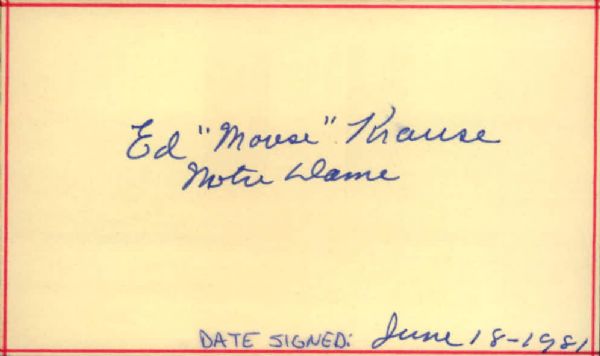 Ed "Moose" Krause
Notre Dame
DATE SIGNED: June 18-1981